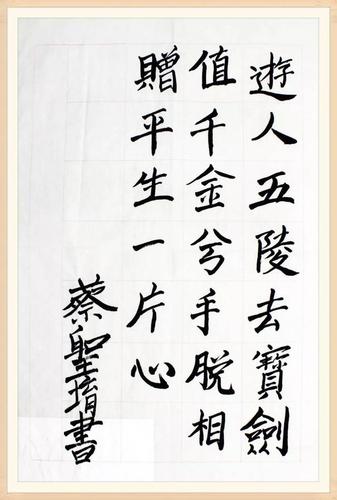 遊人五陵去寶劍
值千金兮手脱相
贈平生一片心
蔡聖堉書